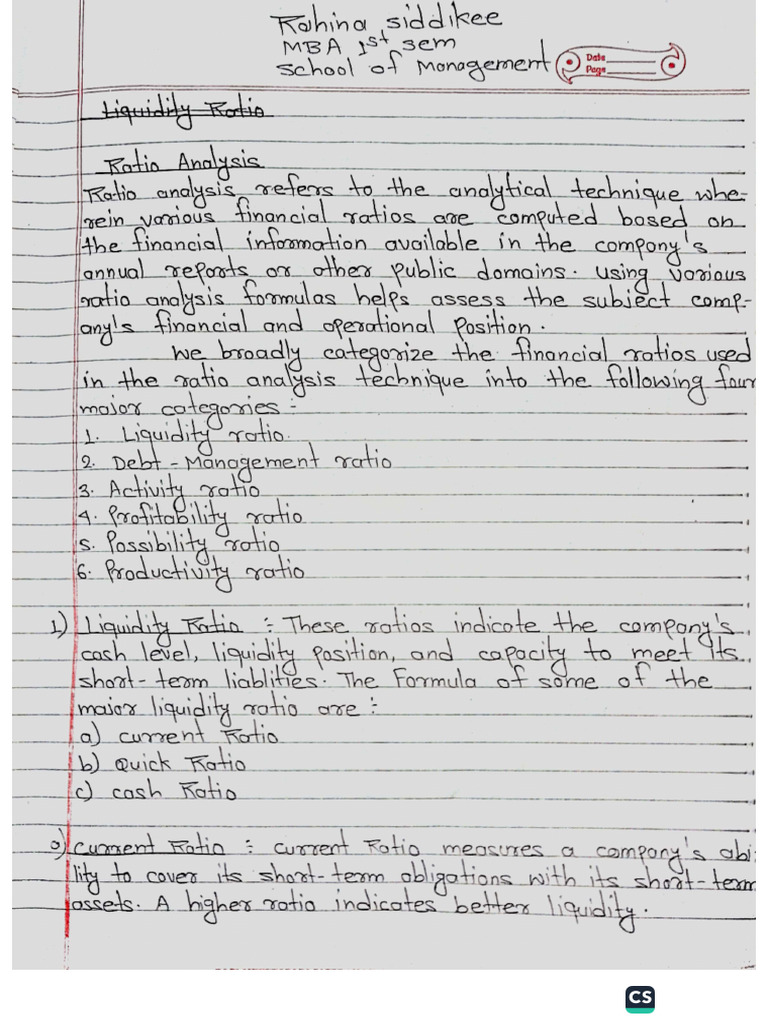 Rahina Siddikee
MBA 1st sem
School of Management
Date
Page
Liquidity Ratio
Ratio Analysis
Ratio analysis refers to the analytical technique whe-
rein various financial ratios are computed based on
the financial information available in the company's
annual reports or other public domains. Using various
ratio analysis formulas helps assess the subject comp-
any's financial and operational position.
We broadly categorize the financial ratios used
in the ratio analysis technique into the following four
major categories :-
1. Liquidity ratio.
2. Debt - Management ratio
3. Activity ratio
4. Profitability ratio
5. Possibility ratio
6. Productivity ratio
1) Liquidity Ratio :- These ratios indicate the company's
cash level, liquidity position, and capacity to meet its
short-term liablities. The Formula of some of the
major liquidity ratio are :-
a) current Ratio
b) Quick Ratio
c) cash Ratio
a) Current Ratio :- current Ratio measures a company's abi
lity to cover its short-term obligations with its short-term
assets. A higher ratio indicates better liquidity.
CS